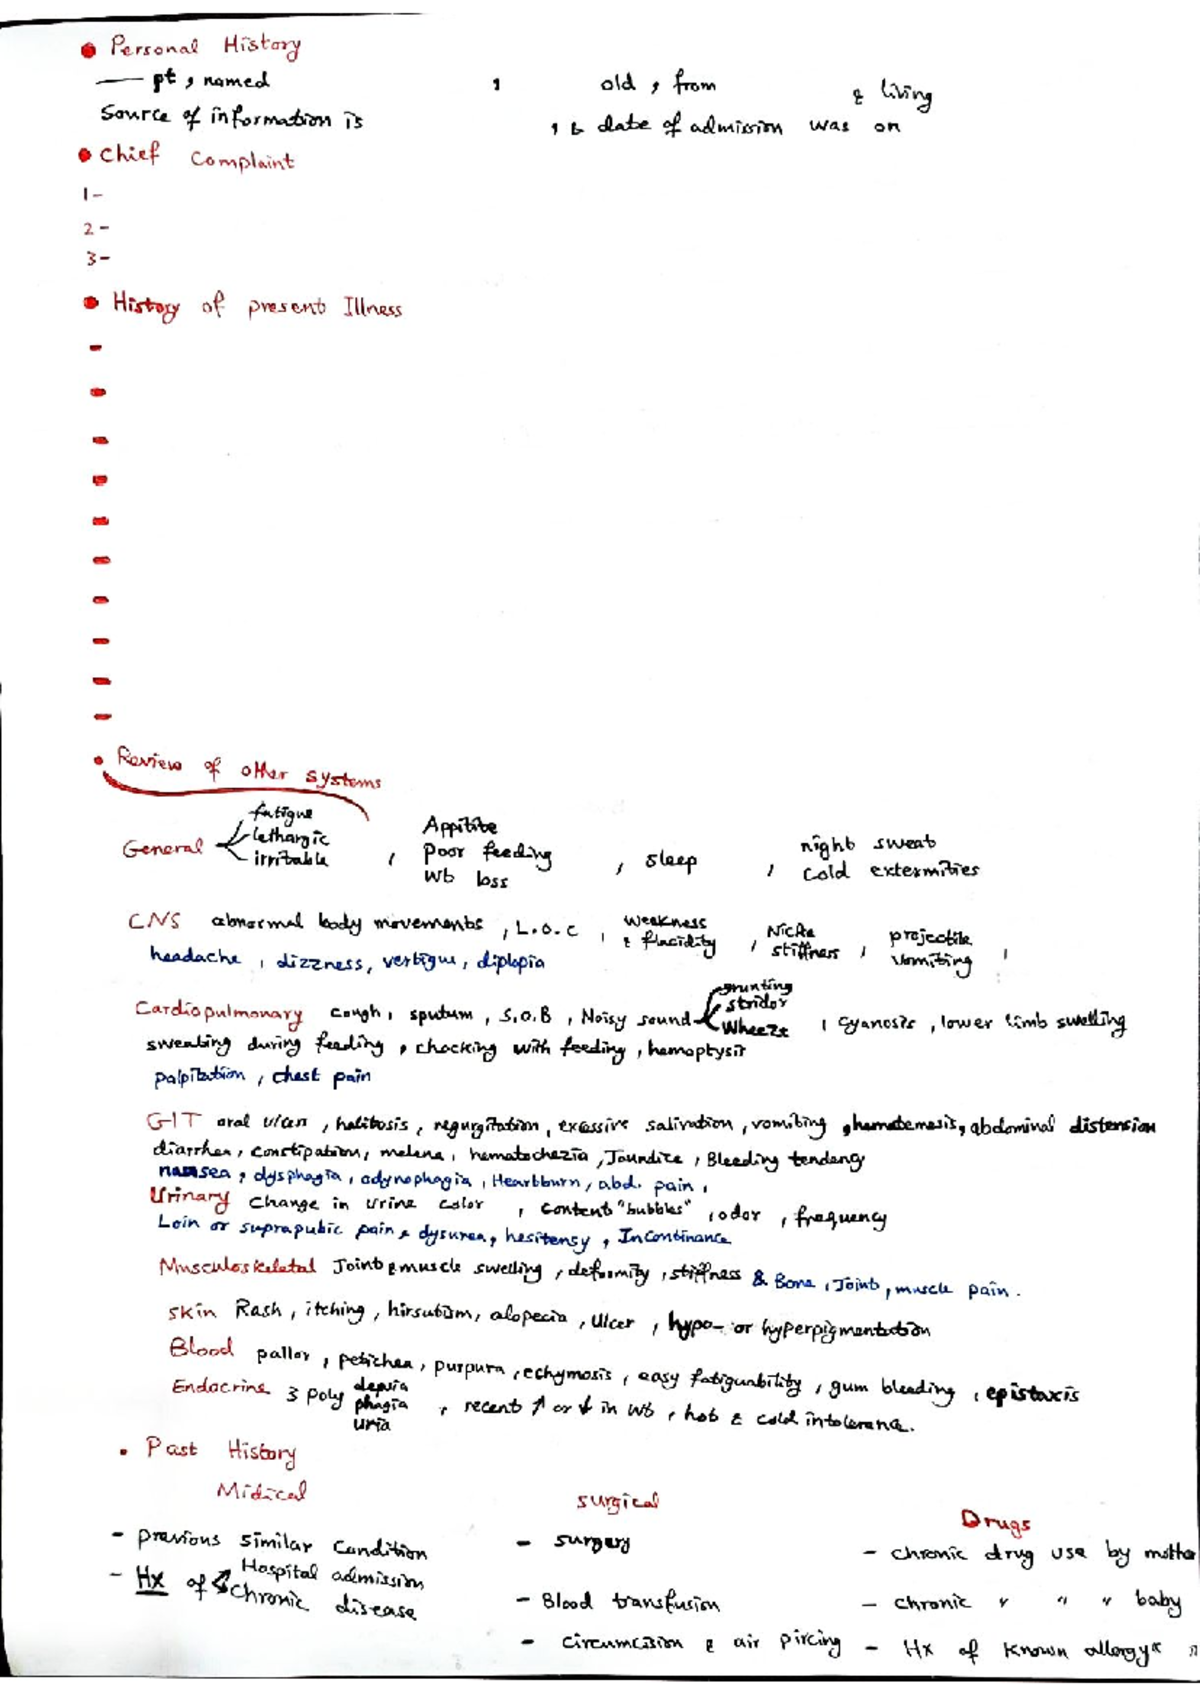 Personal History
—— pt, named , old, from & living
Source of information is , & date of admission was on
Chief Complaint
1-
2-
3-
History of present Illness
-
-
-
-
-
-
-
-
-
-
Review of other systems
General fatigue
lethargic
irritable , Appitite
Poor feeding
wt loss , sleep , night sweat
cold extermities
CNS abnormal body movements, L.O.C , weakness
& flacidity , Nicke
stiffness , projectile
vomiting ,
headache, dizzness, vertigue, diplopia
Cardiopulmonary cough, sputum, S.O.B, Noisy sound grunting
stridor
Wheeze , cyanosis, lower limb swelling
sweating during feeding, chocking with feeding, hemoptysis
palpitation, chest pain
GIT oral ulcer, halitosis, regurgitation, excessive salivation, vomiting, hematemesis, abdominal distension
diarrhea, constipation, melena, hematochezia, Joundice, Bleeding tendency
nausea, dysphagia, odynophagia, Heartburn, abd. pain,
Urinary change in urine color , content "bubbles" , odor , frequency
Loin or suprapubic pain & dysurea, hesitensy, Incontinance
Musculoskeletal Joint & muscle swelling, deformity, stiffness & Bone, Joint, muscle pain.
skin Rash, itching, hirsutism, alopecia, Ulcer, hypo- or hyperpigmentation
Blood pallor, petichea, purpura, echymosis, easy fatiguability, gum bleeding, epistaxis
Endocrine 3 poly depsia
phagia
uria , recent ↑ or ↓ in wt, hot & cold intolerance.
Past History
Midical
surgical
Drugs
- previous similar condition
- surgery
- chronic drug use by mothe
- Hx of Hospital admission
chronic disease
- Blood transfusion
- chronic " " " baby
- circumcision & air pircing
- Hx of known allergy